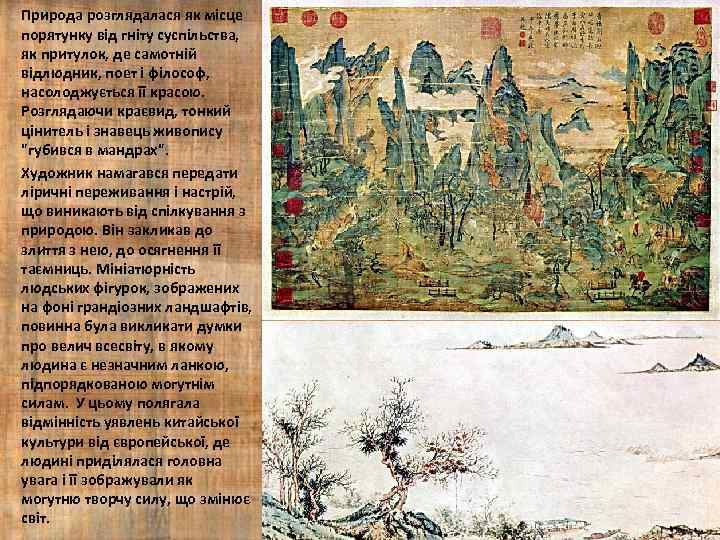 Природа розглядалася як місце
порятунку від гніту суспільства,
як притулок, де самотній
відлюдник, поет і філософ,
насолоджується її красою.
Розглядаючи краєвид, тонкий
цінитель і знавець живопису
"губився в мандрах".
Художник намагався передати
ліричні переживання і настрій,
що виникають від спілкування з
природою. Він закликав до
злиття з нею, до осягнення її
таємниць. Мініатюрність
людських фігурок, зображених
на фоні грандіозних ландшафтів,
повинна була викликати думки
про велич всесвіту, в якому
людина є незначним ланкою,
підпорядкованою могутнім
силам. У цьому полягала
відмінність уявлень китайської
культури від європейської, де
людині приділялася головна
увага і її зображували як
могутню творчу силу, що змінює
світ.